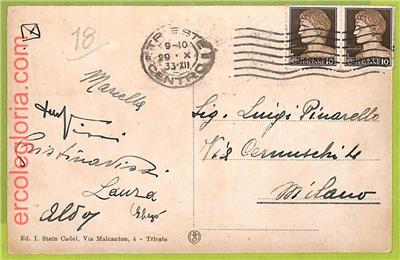 18
TRIESTE
CENTRO
9-10
29 X
33·XII
ITALIANE 10
ITALIANE 10
Marcella
Cristina
Laura
Aldo
Sig. Luigi Pinarello
Via Cernuschi 4
Milano
Ed. I. Stein Cadel, Via Malcanton, 4 - Trieste
ercolegloria.com